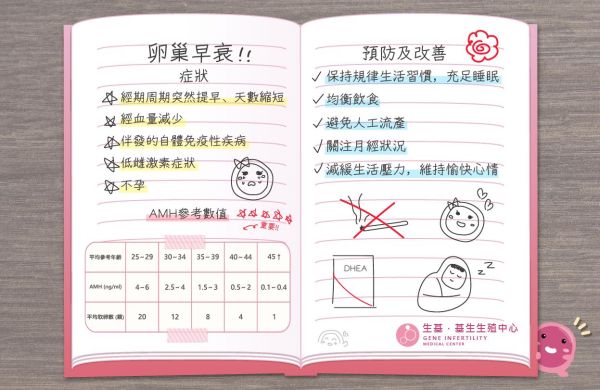 卵巢早衰!!
症狀
經期周期突然提早、天數縮短
經血量減少
伴發的自體免疫性疾病
低雌激素症狀
不孕
AMH參考數值
重要!!
平均參考年齡 25~29 30~34 35~39 40~44 45↑
AMH (ng/ml) 4~6 2.5~4 1.5~3 0.5~2 0.1~0.4
平均取卵數 (顆) 20 12 8 4 1
預防及改善
保持規律生活習慣，充足睡眠
均衡飲食
避免人工流產
關注月經狀況
減緩生活壓力，維持愉快心情
DHEA
z z z
生基．基生生殖中心
GENE INFERTILITY
MEDICAL CENTER